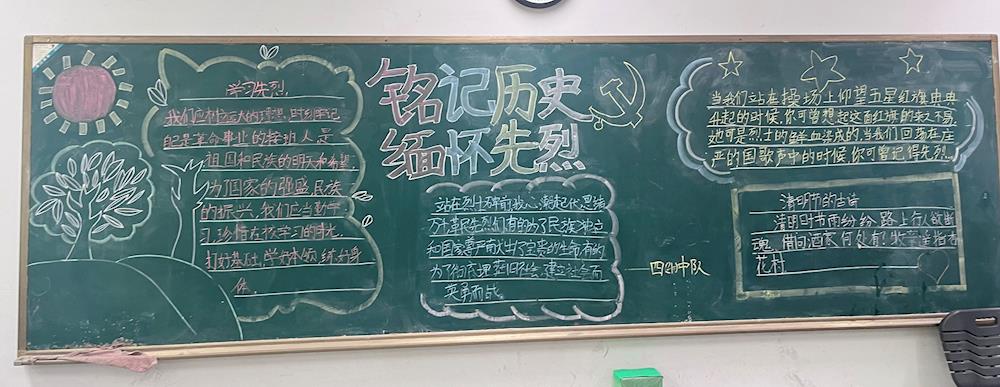 学习先烈
我们应树立远大的理想,时刻牢记
自己是革命事业的接班人,是
祖国和民族的明天和希望.
为了国家的强盛民族
的振兴,我们应当勤学
习,珍惜在校学习的时光.
打好基础,学好本领,练好身
体.
铭记历史
缅怀先烈
站在烈士碑前我心潮起伏思绪
万千革先烈们有的为了民族独立
和国家尊严献出了宝贵的生命,有的
为了彻底埋葬旧社会,建立社会而
英勇而战.
——四(2)中队
当我们站在操场上仰望五星红旗冉冉
升起的时候,你可曾想起这面红旗的来之不易,
她可是烈士的鲜血染成的当我们回荡在庄
严的国歌声中的时候,你可曾记得先烈.
清明节的古诗
清明时节雨纷纷,路上行人欲断
魂,借问酒家何处有?牧童遥指杏
花村.